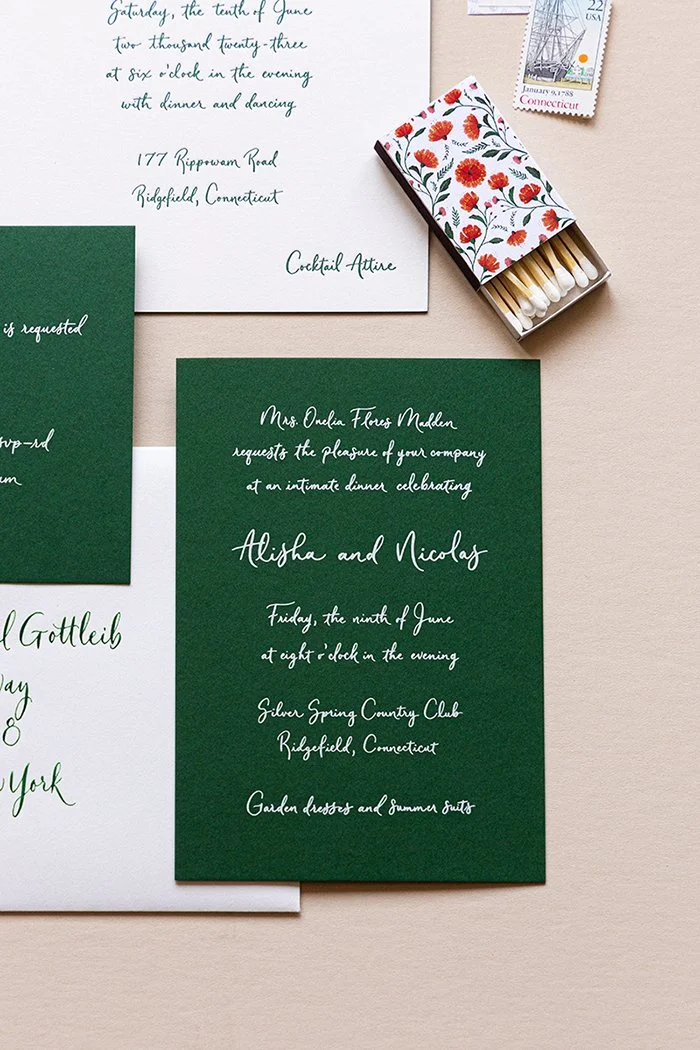 Saturday, the tenth of June
two thousand twenty-three
at six o'clock in the evening
with dinner and dancing
177 Rippowam Road
Ridgefield, Connecticut
Cocktail Attire
22
USA
January 9, 1788
Connecticut
is requested
svp-rd
am
Mrs. Onelia Flores Madden
requests the pleasure of your company
at an intimate dinner celebrating
Alisha and Nicolas
Friday, the ninth of June
at eight o'clock in the evening
Silver Spring Country Club
Ridgefield, Connecticut
Garden dresses and summer suits
l Gottleib
way
8
York